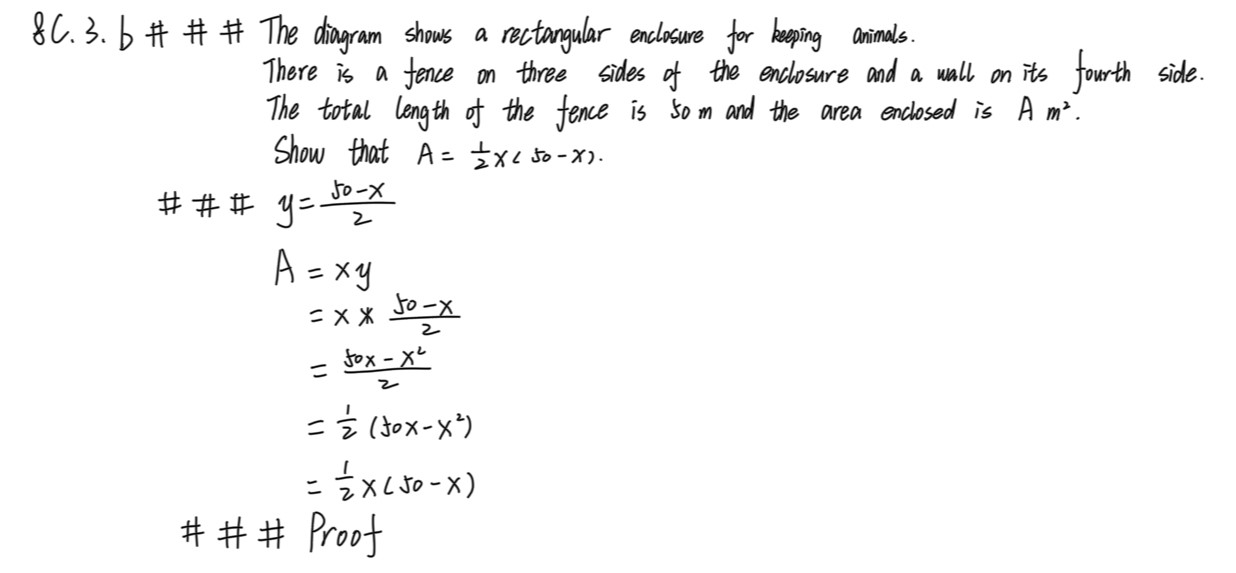 8C.3.b # # # The diagram shows a rectangular enclosure for keeping animals.
There is a fence on three sides of the enclosure and a wall on its fourth side.
The total length of the fence is 50 m and the area enclosed is A m².
Show that A = 1/2 x ( 50 - x ).
# # # y = (50-x)/2
A = xy
= x * (50-x)/2
= (50x - x²)/2
= 1/2 (50x - x²)
= 1/2 x (50 - x)
# # # Proof